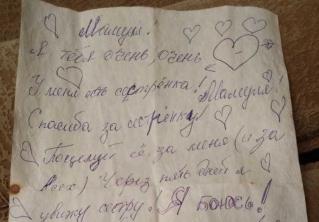 Мамуля.
Я тебя очень, очень
У меня есть сестрёнка! Мамуля!
Спасиба за сестрёнку
Поцелуй её за меня (и за
всех) Через пять дней я
увижу сестру! Я боюсь!